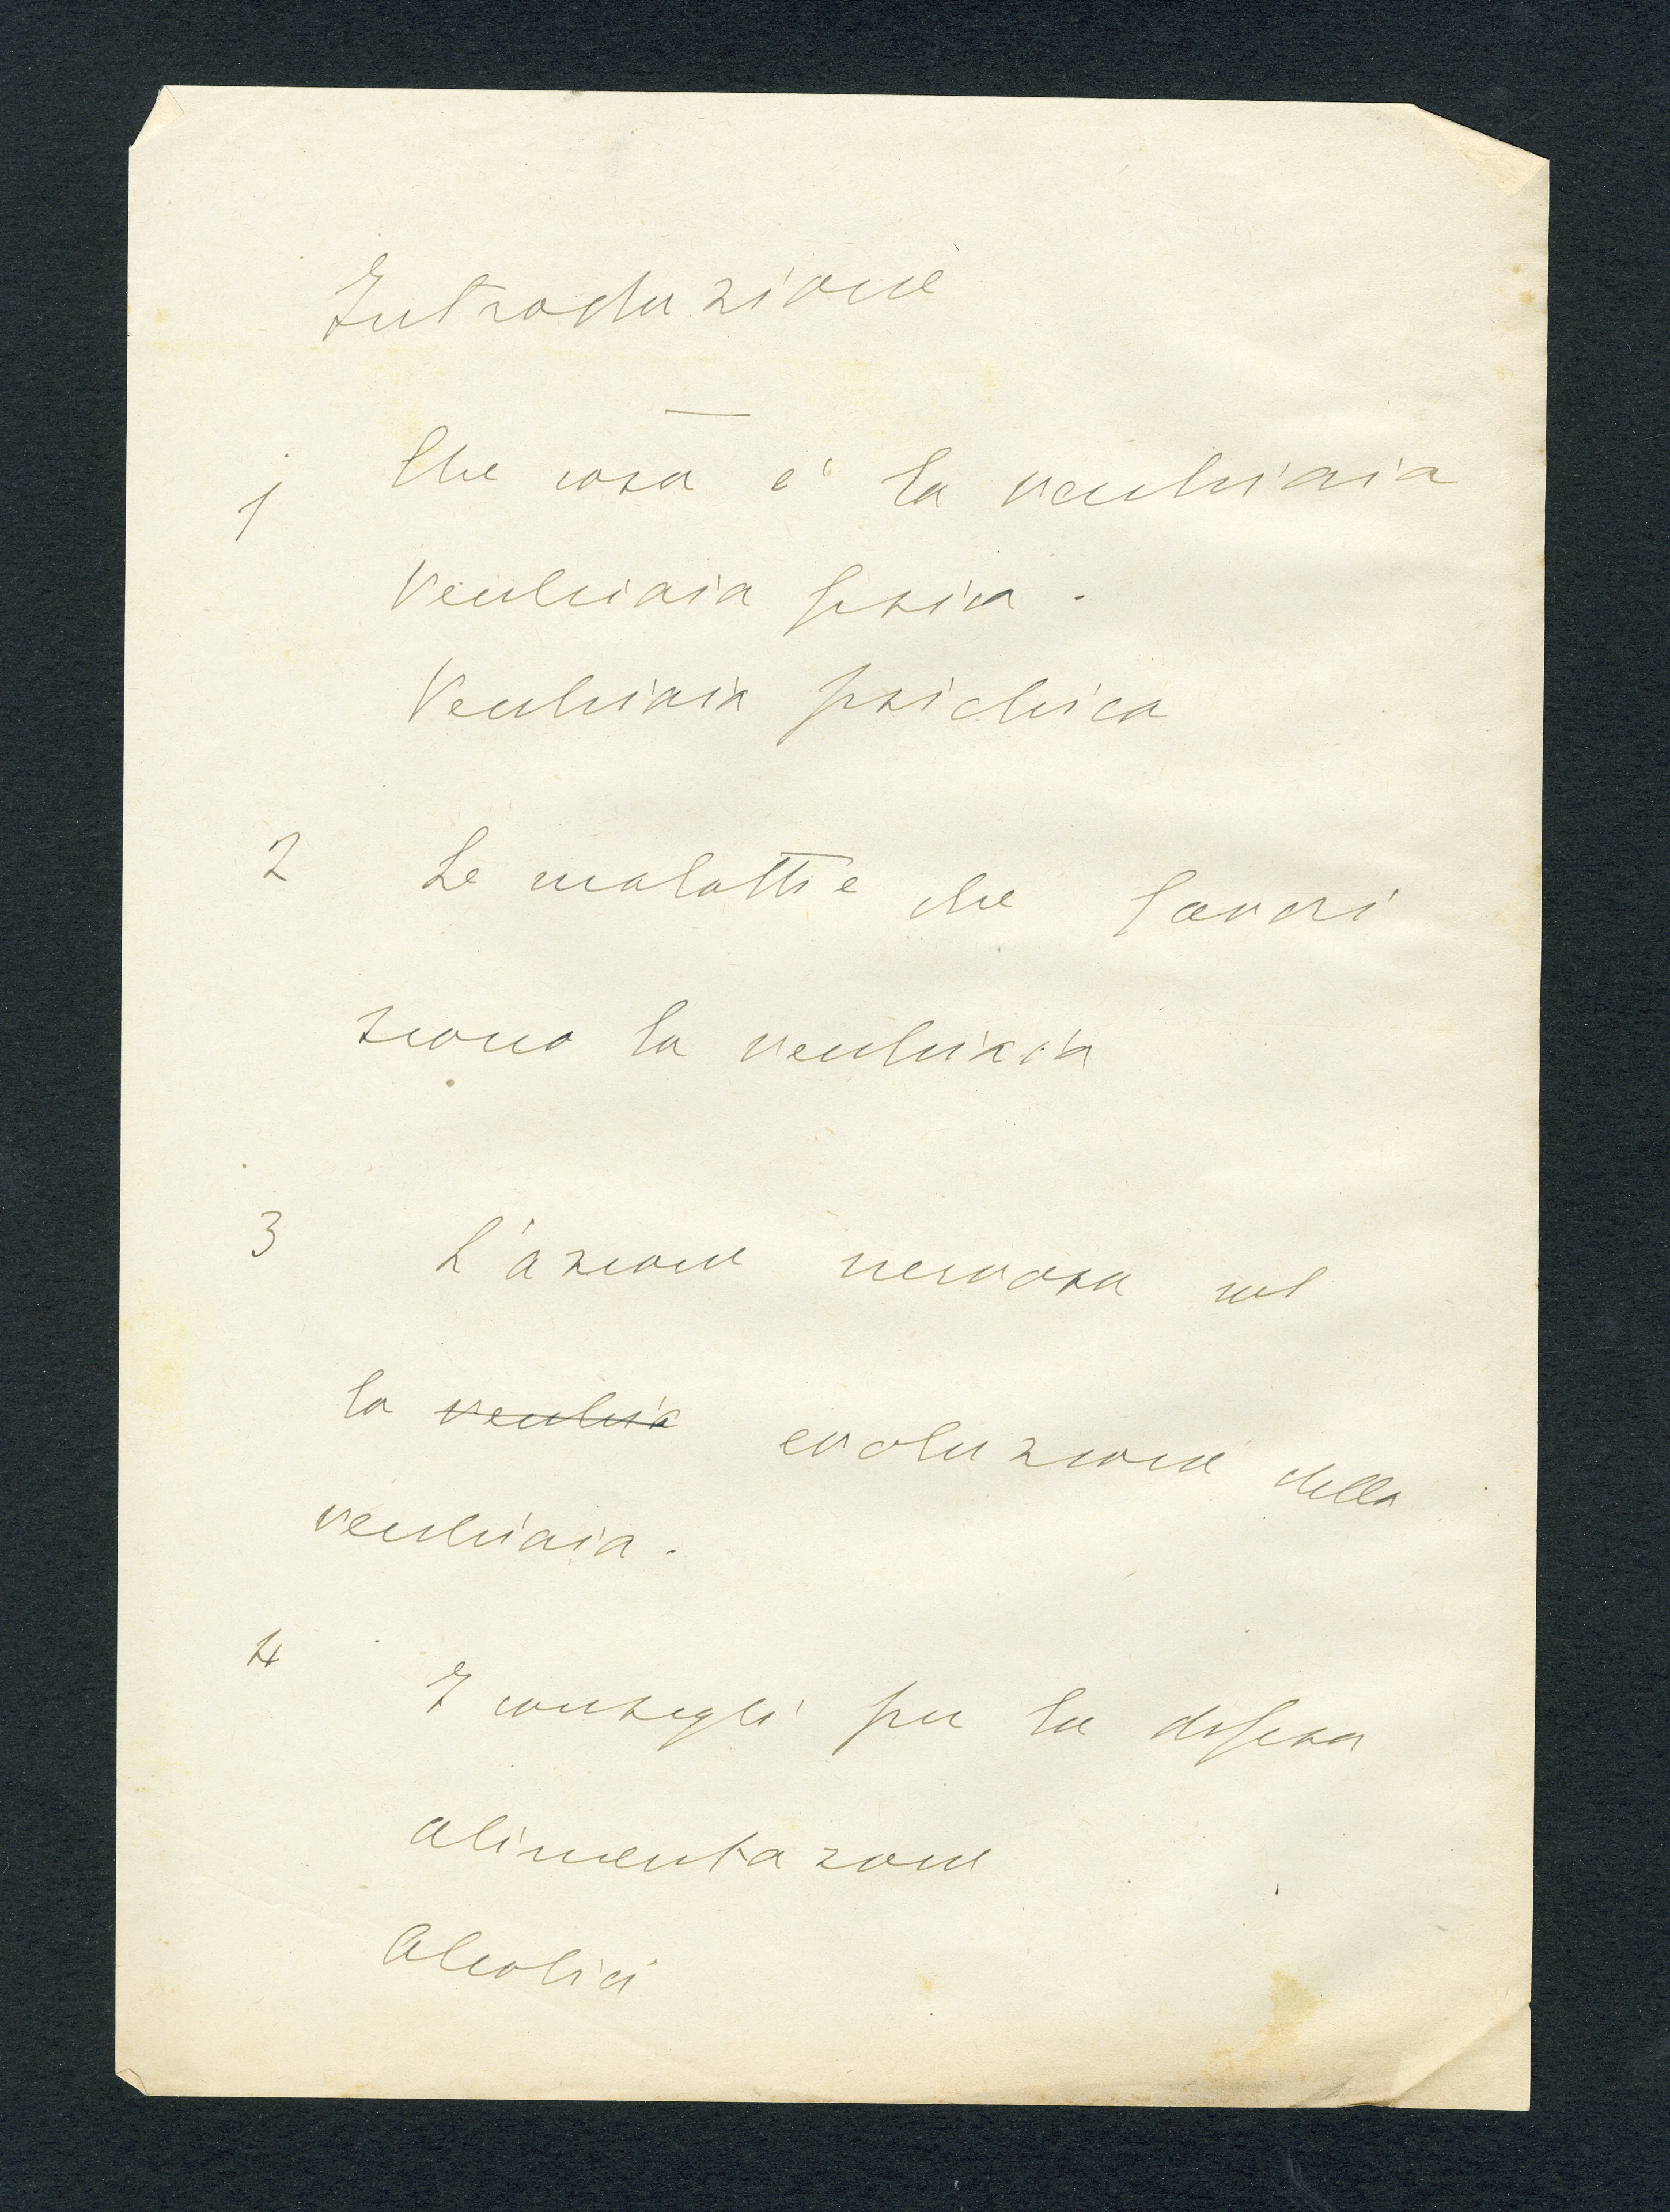 Introduzione
1 Che cosa è la vecchiaia
Vecchiaia fisica.
Vecchiaia psichica
2 Le malattie che favori
scono la vecchiaia
3 L'azione nervosa sul
la vecchia evoluzione della
vecchiaia.
4 I consigli per la difesa
alimentazione
Alcolici